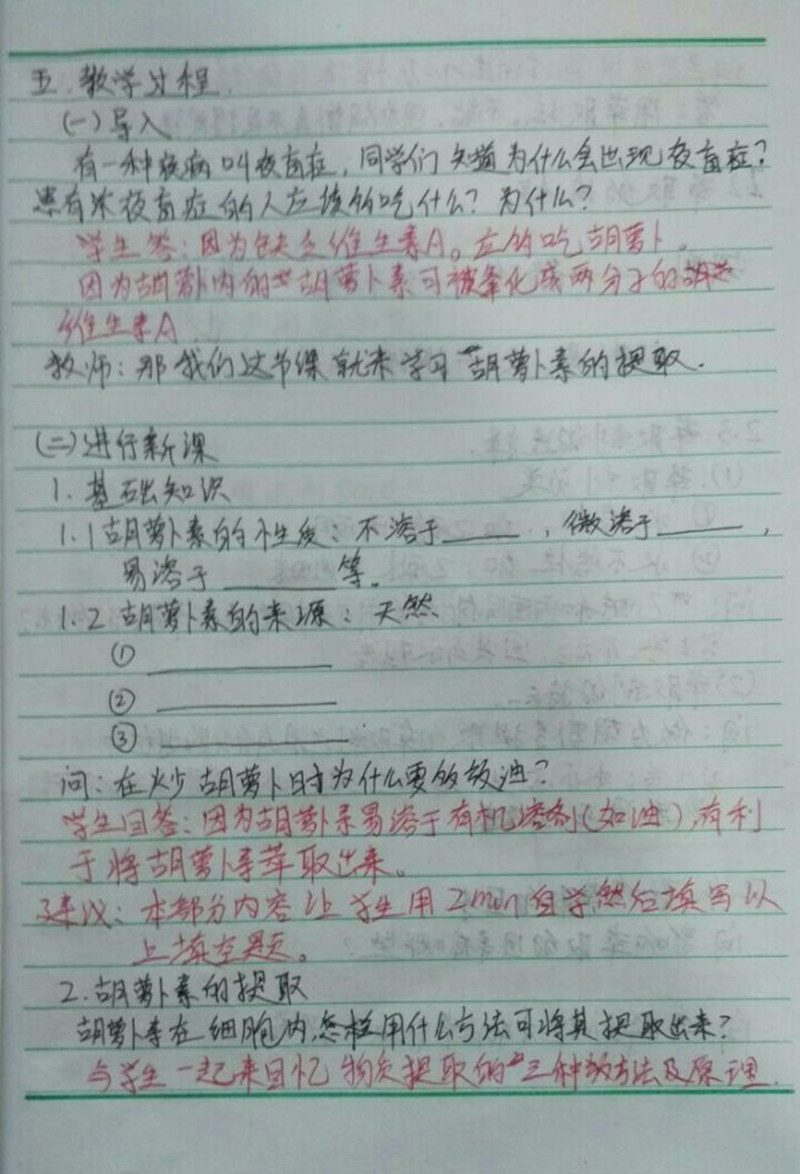 五.教学过程.
(一)导入
有一种疾病叫夜盲症,同学们知道为什么会出现夜盲症?
患有 夜盲症的人应该多吃什么?为什么?
学生答:因为缺乏维生素A。应多吃胡萝卜.
因为胡萝卜内的 胡萝卜素可被氧化成两分子的
维生素A
教师:那我们这节课就来学习 胡萝卜素的提取.
(二)进行新课
1.基础知识
1.1胡萝卜素的性质:不溶于____,微溶于____,
易溶于____等。
1.2胡萝卜素的来源:天然
① ____
② ____
③ ____
问:在炒胡萝卜时为什么要多放油?
学生回答:因为胡萝卜素易溶于有机溶剂(如油),有利
于将胡萝卜素萃取出来。
建议:本部分内容让学生用2min自学然后填写以
上填空题。
2.胡萝卜素的提取
胡萝卜素在细胞内,怎样用什么方法可将其提取出来?
与学生一起来回忆 物质提取的 三种 方法及原理.